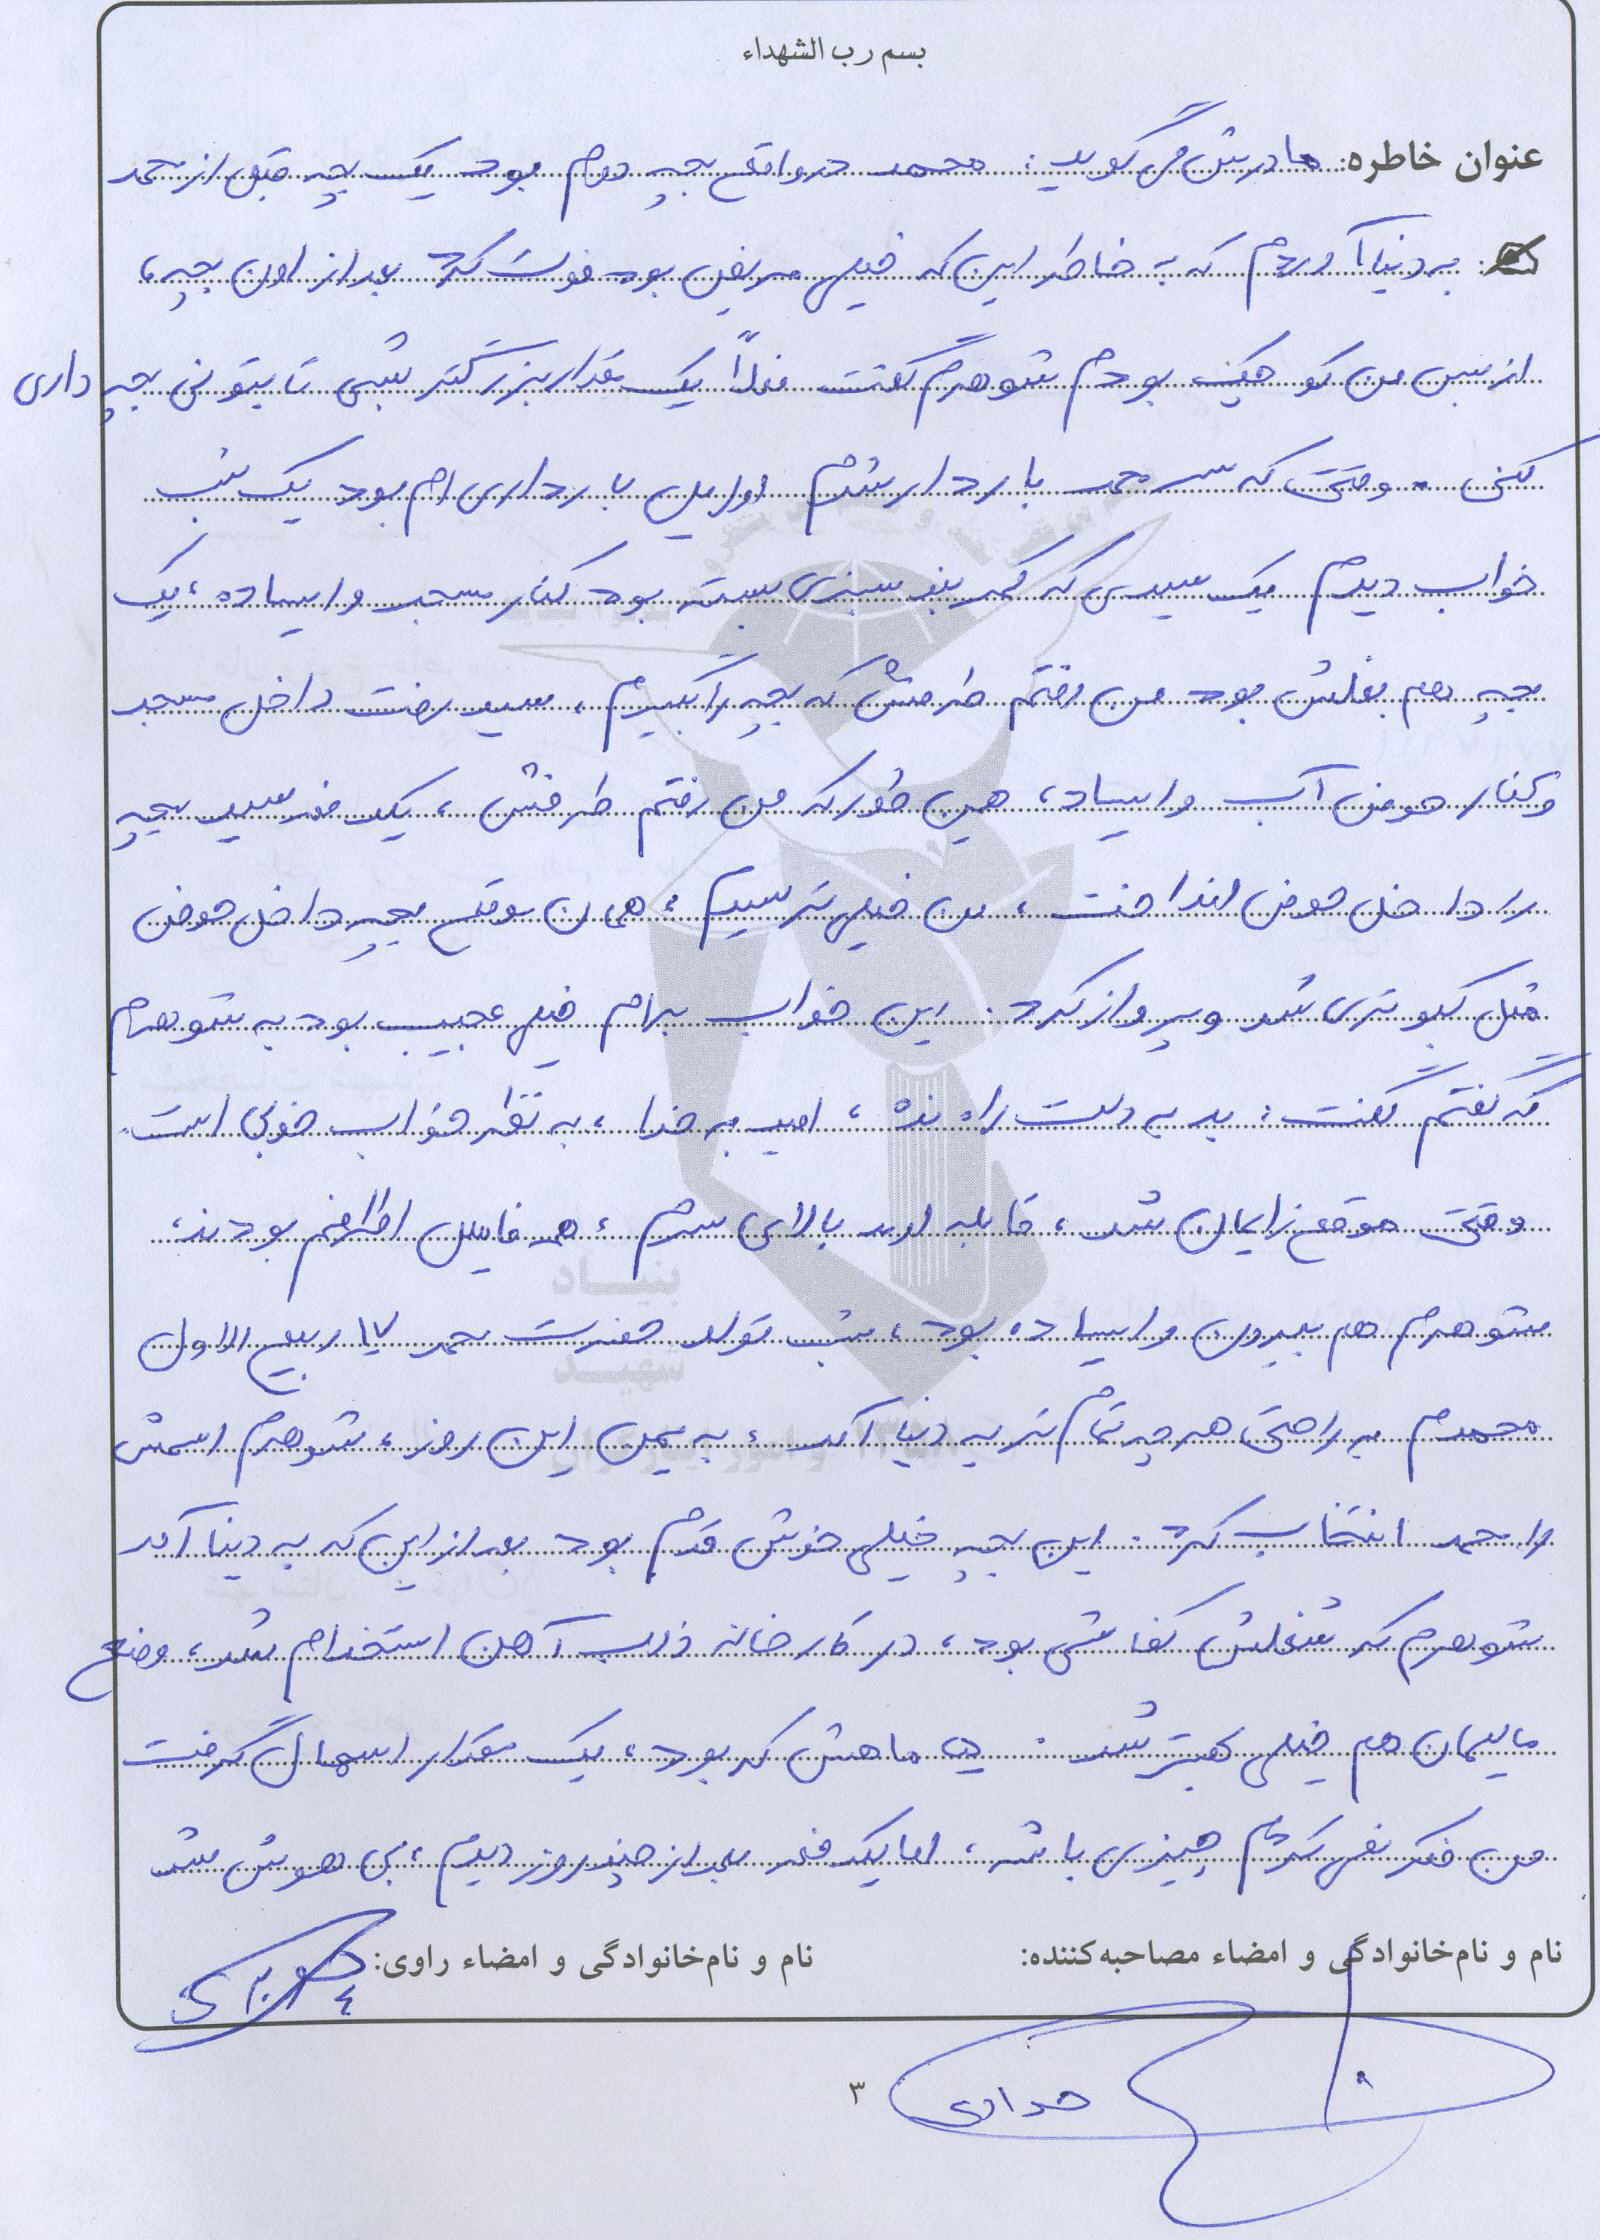 بسم رب الشهداء
عنوان خاطره: مادرش می گوید: محمد در واقع بچه دوم بود یک بچه قبل از محمد
به دنیا آوردم که به خاطر این که خیلی مریض بود فوت کرد بعد از اون بچه،
از بس من کوچیک بودم شوهرم گفت فعلاً یک مقدار بزرگتر بشی تا بتونی بچه داری
کنی. وقتی که سر محمد باردار شدم اوایل بارداری ام بود یک شب
خواب دیدم یک سیدی که کمربند سبزی بسته بود کنار مسجد وایساده، یک
بچه هم بغلش بود من رفتم طرفش که بچه را بگیرم، سید رفت داخل مسجد
و کنار حوض آب وایساد، همین طور که من رفتم طرفش، یکدفعه سید بچه
را داخل حوض انداخت، من خیلی ترسیدم، همان موقع بچه داخل حوض
مثل کبوتری شد و پرواز کرد. این خواب برام خیلی عجیب بود به شوهرم
که گفتم گفت: بد به دلت راه نده، امید به خدا، به نظر خواب خوبی است.
وقتی موقع زایمان شد، قابله اومد بالای سرم، همه فامیل اطرافم بودند،
شوهرم هم بیرون وایساده بود، شب تولد حضرت محمد ۱۷ ربیع الاول
محمدم به راحتی هر چه تمام تر به دنیا آمد، به یمن این روز، شوهرم اسمش
را محمد انتخاب کرد. این بچه خیلی خوش قدم بود بعد از این که به دنیا آمد
شوهرم که شغلش کفاشی بود، در کارخانه ذوب آهن استخدام شد، وضع
مالیمان هم خیلی بهتر شد. ماهش که بود، یک مقدار اسهال گرفت
من فکر نمی کردم چیزی باشه، اما یکدفعه بعد از چند روز دیدم، بی هوش شد
نام و نام‌خانوادگی و امضاء مصاحبه‌کننده: نام و نام‌خانوادگی و امضاء راوی:
حدادی
۳
بنیاد
شهید
و امور ایثارگران